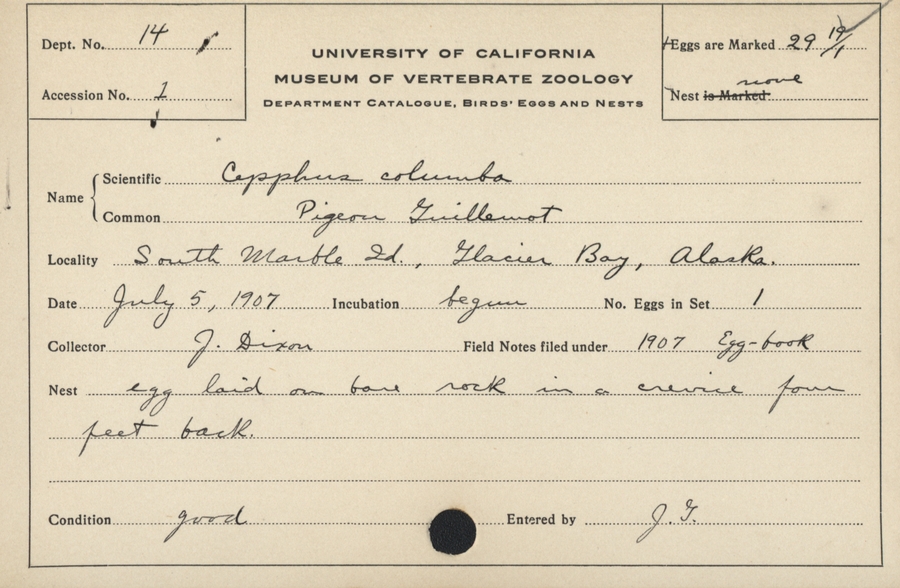 Dept. No. 14
Accession No. 1
UNIVERSITY OF CALIFORNIA
MUSEUM OF VERTEBRATE ZOOLOGY
DEPARTMENT CATALOGUE, BIRDS' EGGS AND NESTS
Eggs are Marked 29 19/1
none
Nest is Marked
Name
Scientific Cepphus columba
Common Pigeon Guillemot
Locality South Marble Id., Glacier Bay, Alaska.
Date July 5, 1907 Incubation begun No. Eggs in Set 1
Collector J. Dixon Field Notes filed under 1907 Egg-book
Nest egg laid on bare rock in a crevice four
feet back.
Condition good Entered by J. G.